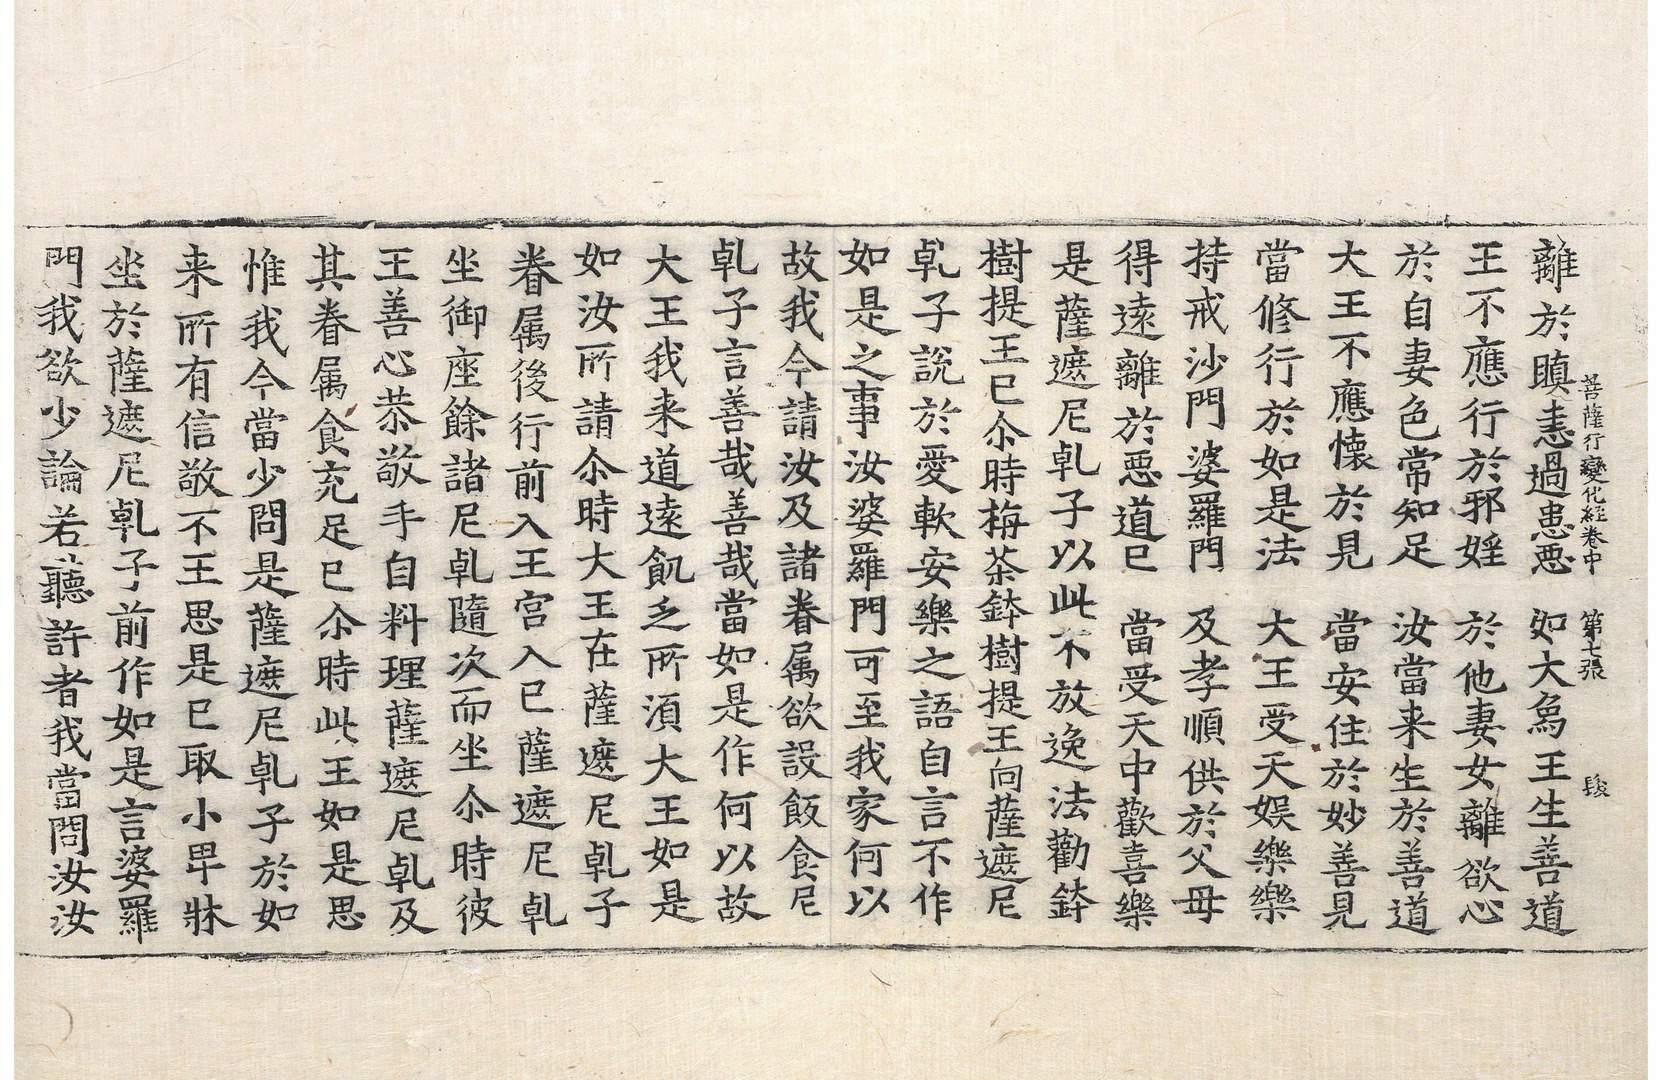 菩薩行變化經卷中 第七張
離於瞋恚過患惡 如大烏王生善道
王不應行於邪婬 於他妻女離欲心
於自妻色常知足 汝當来生於善道
大王不應懷於見 當安住於妙善見
當修行於如是法 大王受天娛樂樂
持戒沙門婆羅門 及孝順供於父母
得遠離於惡道已 當受天中歡喜樂
是薩遮尼乹子以此不放逸法勸鉢
樹提王已尒時栴荼鉢樹提王向薩遮尼
乹子說於愛軟安樂之語自言不作
如是之事汝婆羅門可至我家何以
故我今請汝及諸眷属欲設飯食尼
乹子言善哉善哉當如是作何以故
大王我来道遠飢乏所湏大王如是
如汝所請尒時大王在薩遮尼乹子
眷属後行前入王宮入已薩遮尼乹
坐御座餘諸尼乹隨次而坐尒時彼
王善心恭敬手自料理薩遮尼乹及
其眷属食充足已尒時此王如是思
惟我今當少問是薩遮尼乹子於如
来所有信敬不王思是已取小卑牀
坐於薩遮尼乹子前作如是言婆羅
門我欲少論若聽許者我當問汝汝